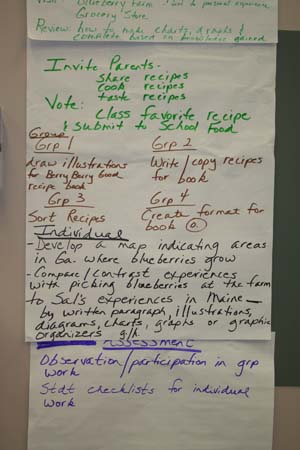 Blueberry Farm
Grocery Store
Review how to make charts, graphs &
complete based on knowledge gained
Invite Parents-
Share recipes
Cook recipes
taste recipes
Vote:
Class favorite recipe
& Submit to School Food
Group
Grp 1
draw illustrations
for Berry Berry Good
recipe book
Grp 2
Write/copy recipes
for book
Grp 3
Sort Recipes
Grp 4
Create format for
book
Individual
- Develop a map indicating areas
in Ga. where blueberries grow
- Compare/Contrast experiences
with picking blueberries at the farm
to Sal's experiences in Maine
by written paragraph, illustrations,
diagrams, charts, graphs or graphic
organizers
Assessment
Observation/participation in grp
work
Stdt checklists for individual
work